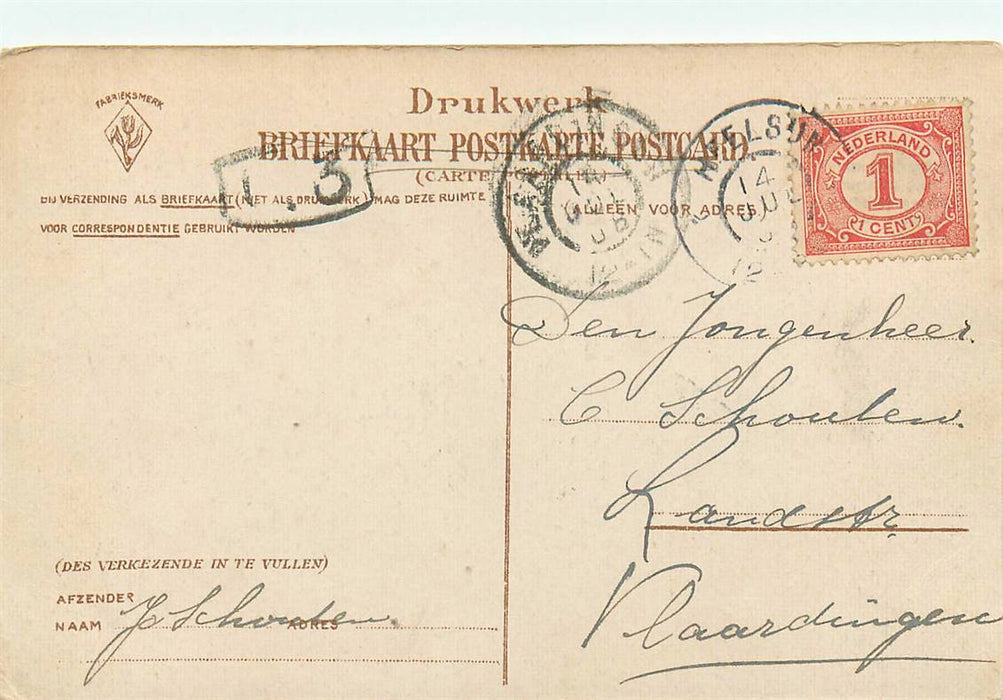 FABRIEKSMERK
Drukwerk
BRIEFKAART POSTKARTE POSTCARD
1.3
BIJ VERZENDING ALS BRIEFKAART (NIET ALS DRUKWERK) MAG DEZE RUIMTE
VOOR CORRESPONDENTIE GEBRUIKT WORDEN
(ALLEEN VOOR ADRES.)
14
JUL
NEDERLAND
1
1 CENT
Den Jongenheer
C Schouten.
Landstr
Vlaardingen
(DES VERKIEZENDE IN TE VULLEN)
AFZENDER
NAAM J Schouten. ADRES